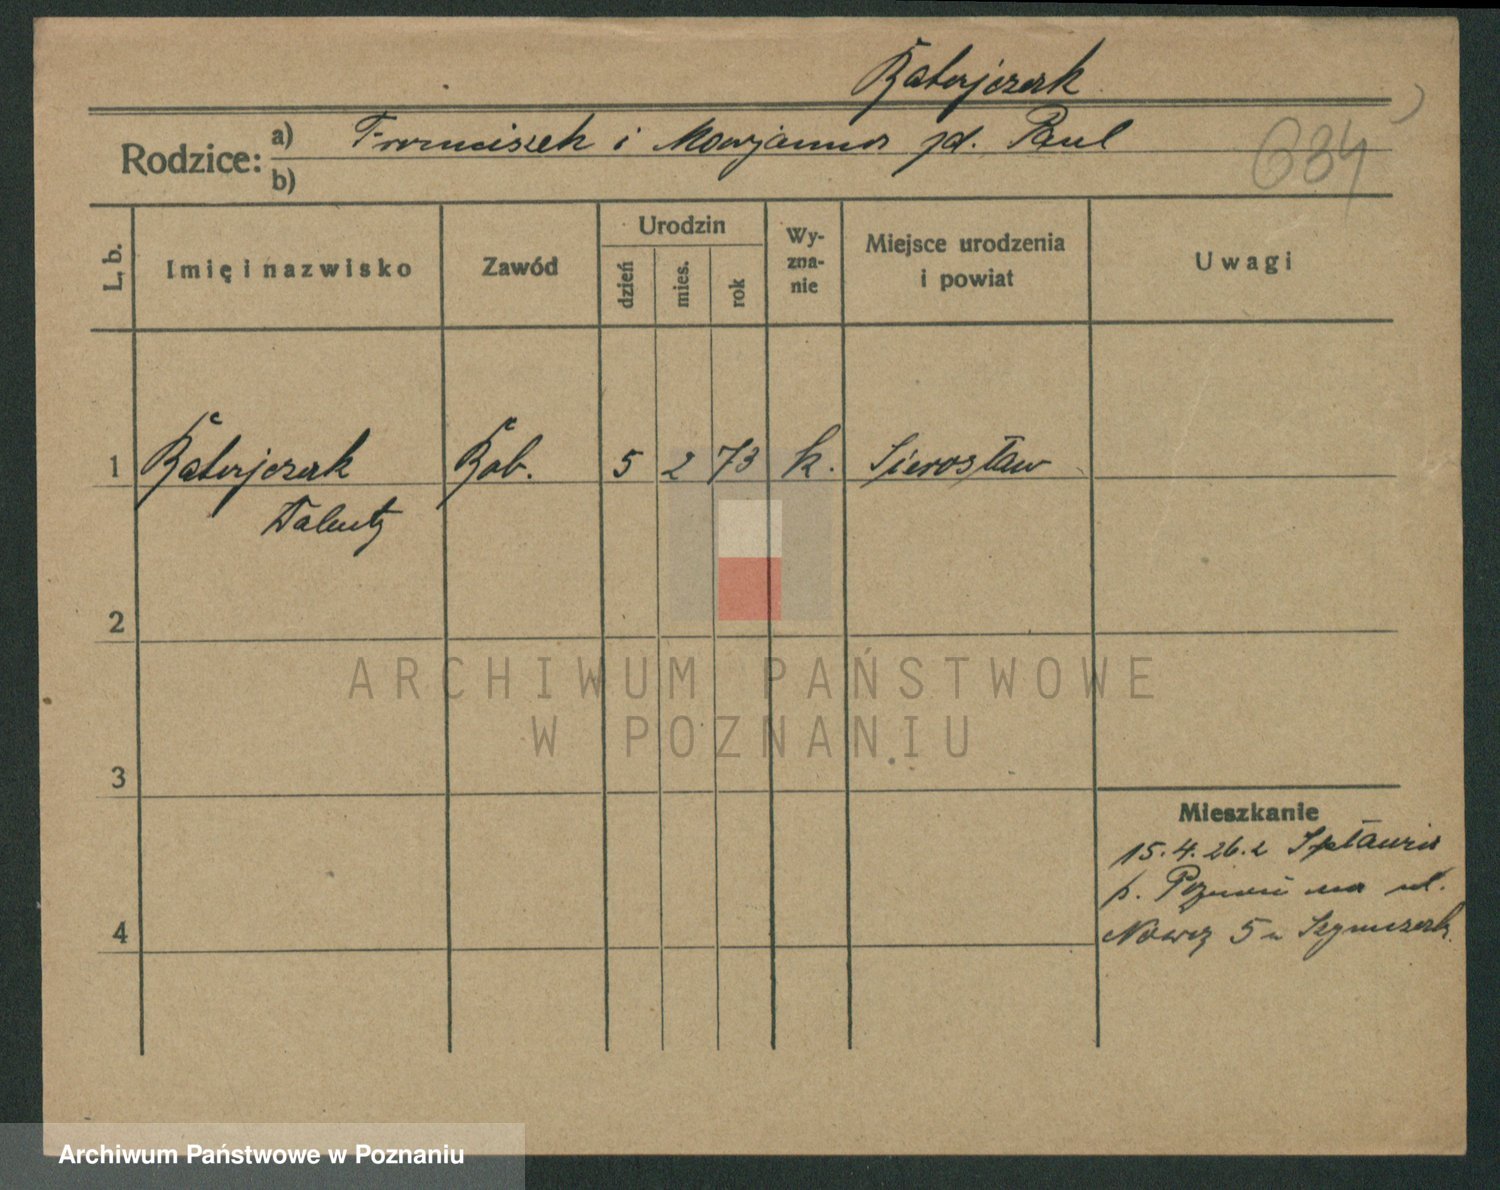 Ratajczak
Rodzice: a) Franciszek i Marjanna zd. Paul
b)
684
L. b.
Imię i nazwisko
Zawód
Urodzin
dzień
mies.
rok
Wy-
zna-
nie
Miejsce urodzenia
i powiat
Uwagi
1 Ratajczak Rob. 5 2 73 k. Sierosław
Walenty
2
3
4
Mieszkanie
15.4.26. z Spławia
p. Poznań na ul.
Nowa 5 u Szymczak
ARCHIWUM PAŃSTWOWE
W POZNANIU
Archiwum Państwowe w Poznaniu